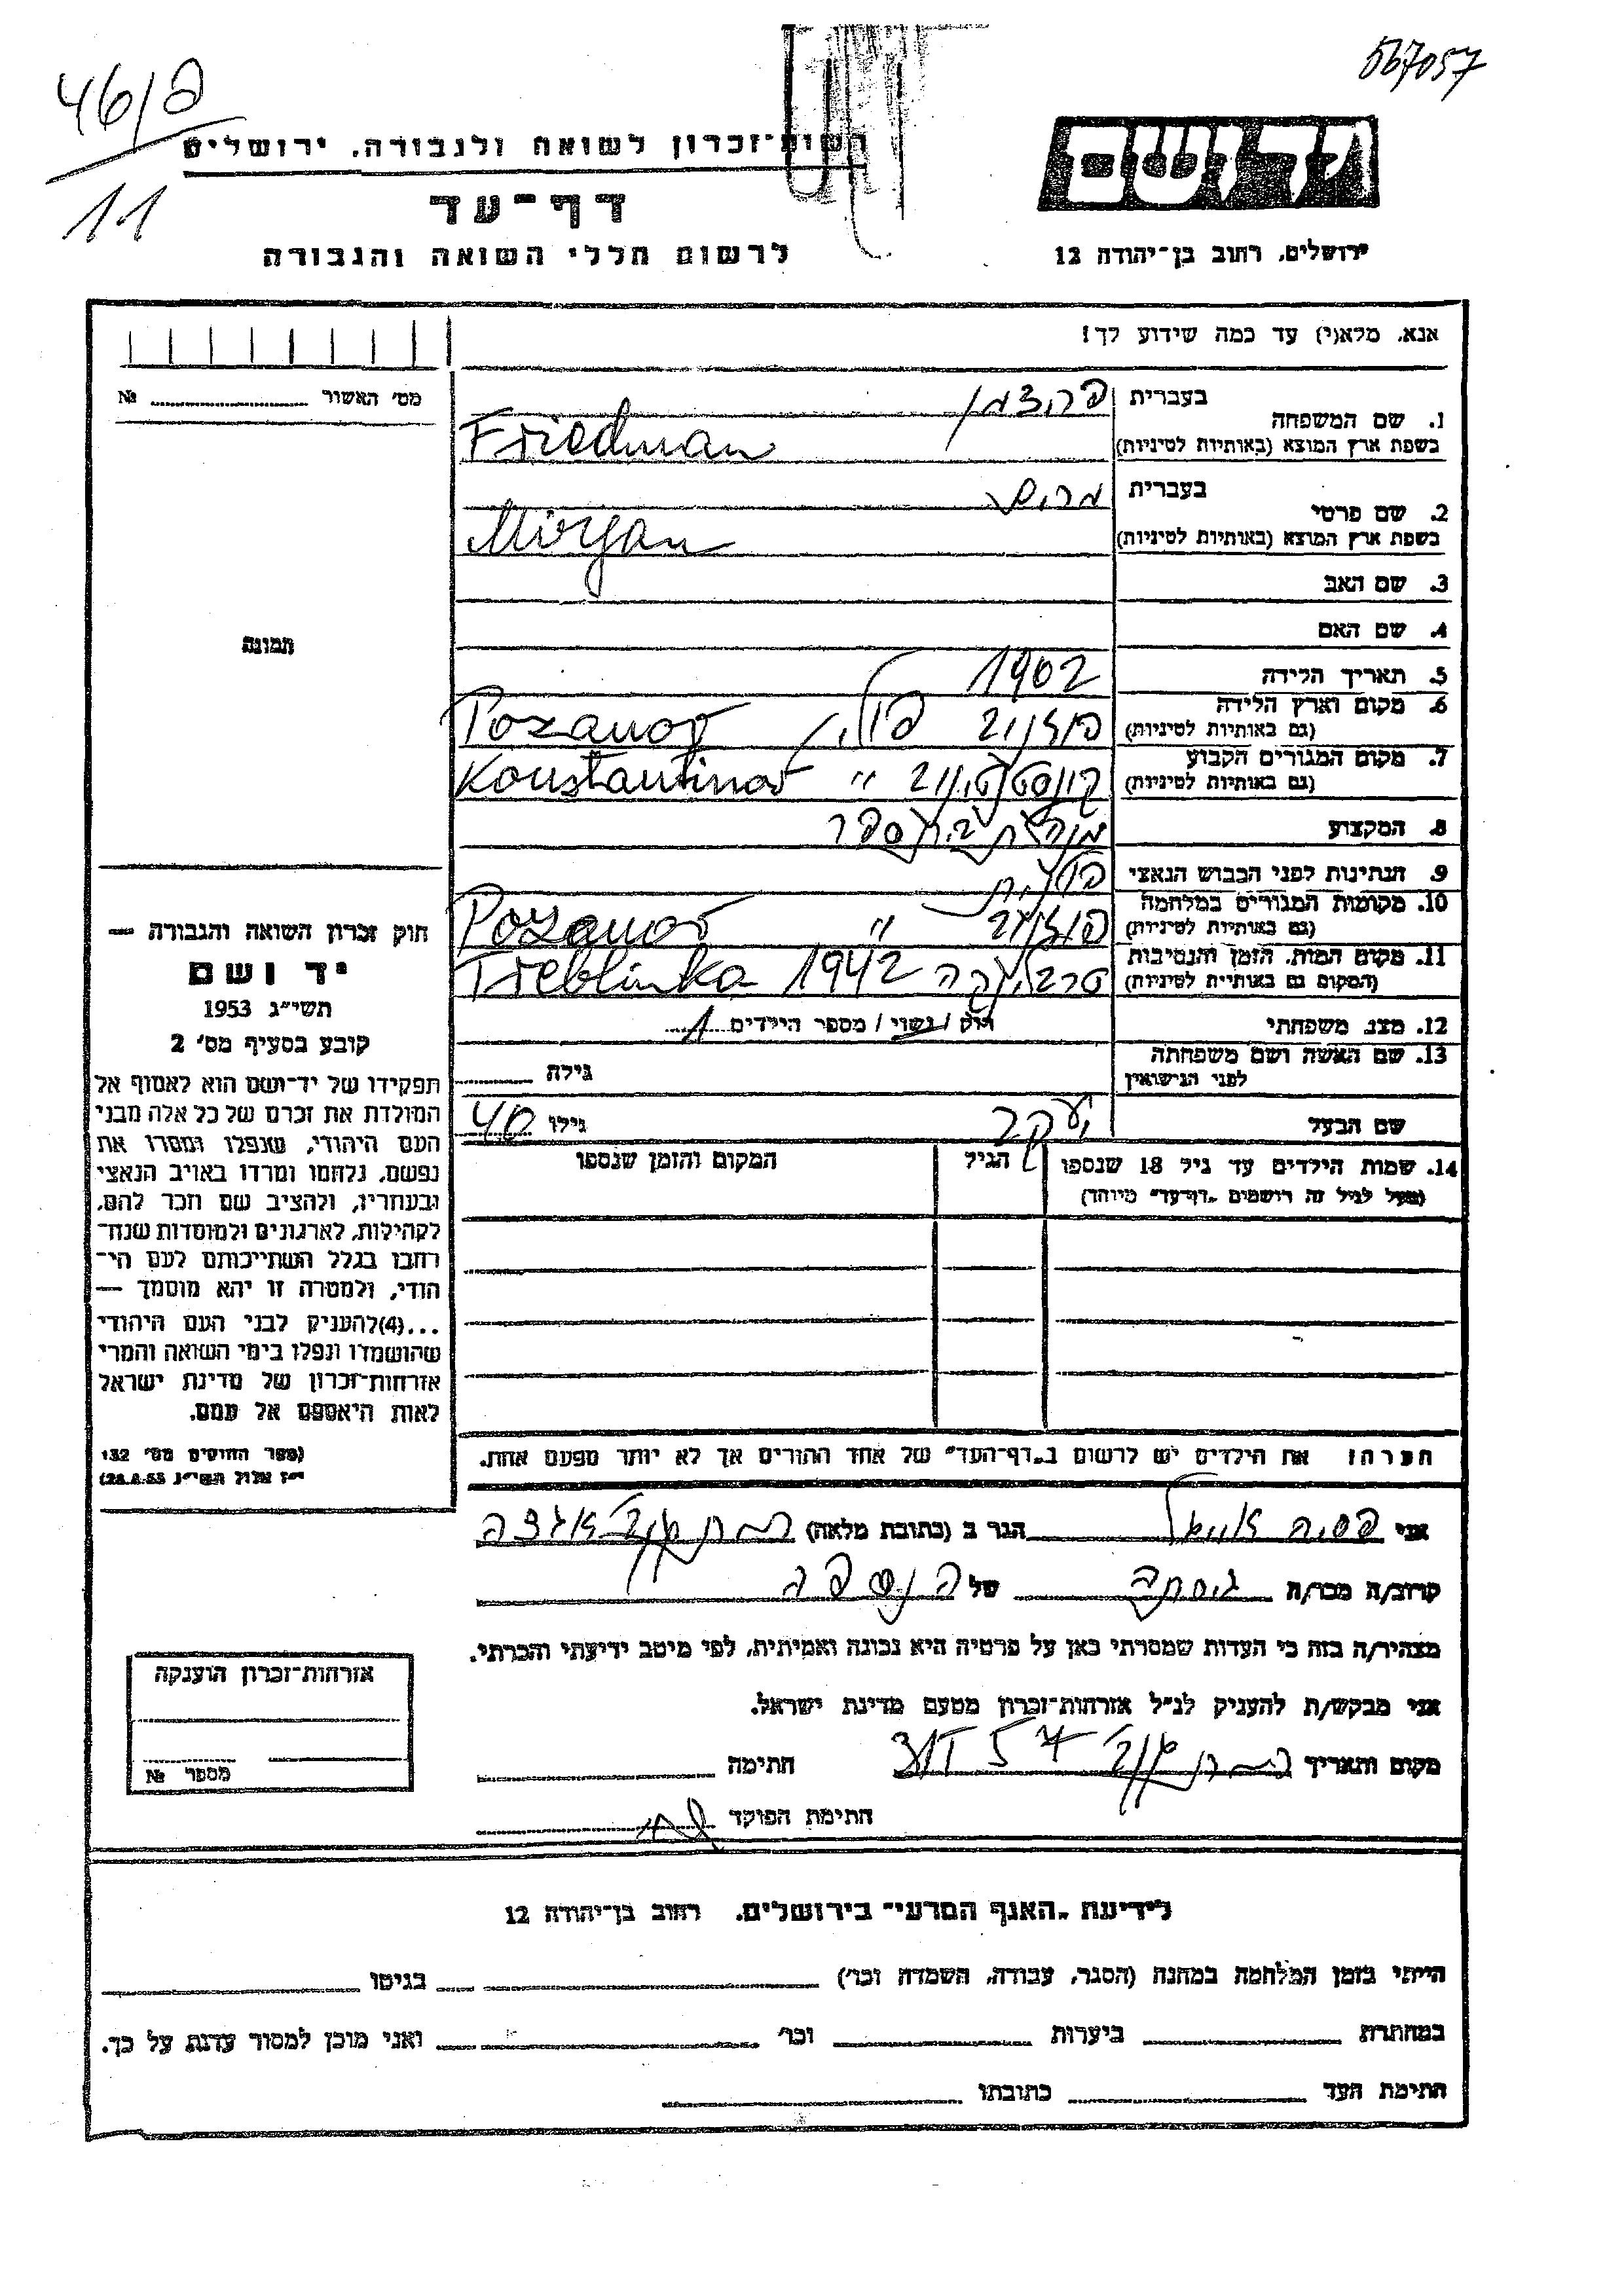 567057
46/פ
11
יד ושם
רשות־זכרון לשואה ולגבורה, ירושלים
דף־עד
לרשום חללי השואה והגבורה
ירושלים, רחוב בן־יהודה 12
אנא, מלא(י) עד כמה שידוע לך!
מס׳ האשור № 
1. שם המשפחה
בעברית פרידמן
בשפת ארץ המוצא (באותיות לטיניות) Friedman
2. שם פרטי
בעברית מרים
בשפת ארץ המוצא (באותיות לטיניות) Mirjan
3. שם האב
4. שם האם
תמונה
5. תאריך הלידה 1902
6. מקום וארץ הלידה
(גם באותיות לטיניות) פוזנוב פולין Pozanov
7. מקום המגורים הקבוע
(גם באותיות לטיניות) קונסטנטינוב " Konstantinov
8. המקצוע מנהלת בית ספר
9. הנתינות לפני הכבוש הנאצי פולנית
10. מקומות המגורים במלחמה
(גם באותיות לטיניות) פוזנוב " Pozanov
11. מקום המות, הזמן והנסיבות
(המקום גם באותיות לטיניות) טרבלינקה 1942 Treblinka
12. מצב משפחתי רווק / נשוי / מספר הילדים 1
13. שם האשה ושם משפחתה
לפני הנישואין גילה
שם הבעל יעקב גילו 40
14. שמות הילדים עד גיל 18 שנספו
(מעל לגיל זה רושמים "דף־עד" מיוחד)
הגיל
המקום והזמן שנספו
חוק זכרון השואה והגבורה —
יד ושם
תשי״ג 1953
קובע בסעיף מס׳ 2
תפקידו של יד־ושם הוא לאסוף אל
המולדת את זכרם של כל אלה מבני
העם היהודי, שנפלו ומסרו את
נפשם, נלחמו ומרדו באויב הנאצי
ובעוזריו, ולהציב שם וזכר להם,
לקהילות, לארגונים ולמוסדות שנח־
רבו בגלל השתייכותם לעם הי־
הודי, ולמטרה זו יהא מוסמך —
...(4) להעניק לבני העם היהודי
שהושמדו ונפלו בימי השואה והמרי
אזרחות־זכרון של מדינת ישראל
לאות היאספם אל עמם.
(ספר החוקים מס׳ 132
י״ז אלול תשי״ג 28.8.53)
הערה: את הילדים יש לרשום ב"דף־העד" של אחד ההורים אך לא יותר מפעם אחת.
אני הגר ב (כתובת מלאה)
קרוב/ה מכר/ה של
מצהיר/ה בזה כי העדות שמסרתי כאן על פרטיה היא נכונה ואמיתית, לפי מיטב ידיעתי והכרתי.
אני מבקש/ת להעניק לנ״ל אזרחות־זכרון מטעם מדינת ישראל.
מקום ותאריך חתימה
חתימת הפוקד
אזרחות־זכרון הוענקה
מספר №
לידיעת "האגף המדעי" בירושלים, רחוב בן־יהודה 12
הייתי בזמן המלחמה במחנה (הסגר, עבודה, השמדה וכו׳) בגיטו
במחתרת ביערות וכו׳ ואני מוכן למסור עדות על כך.
חתימת העד כתובתו